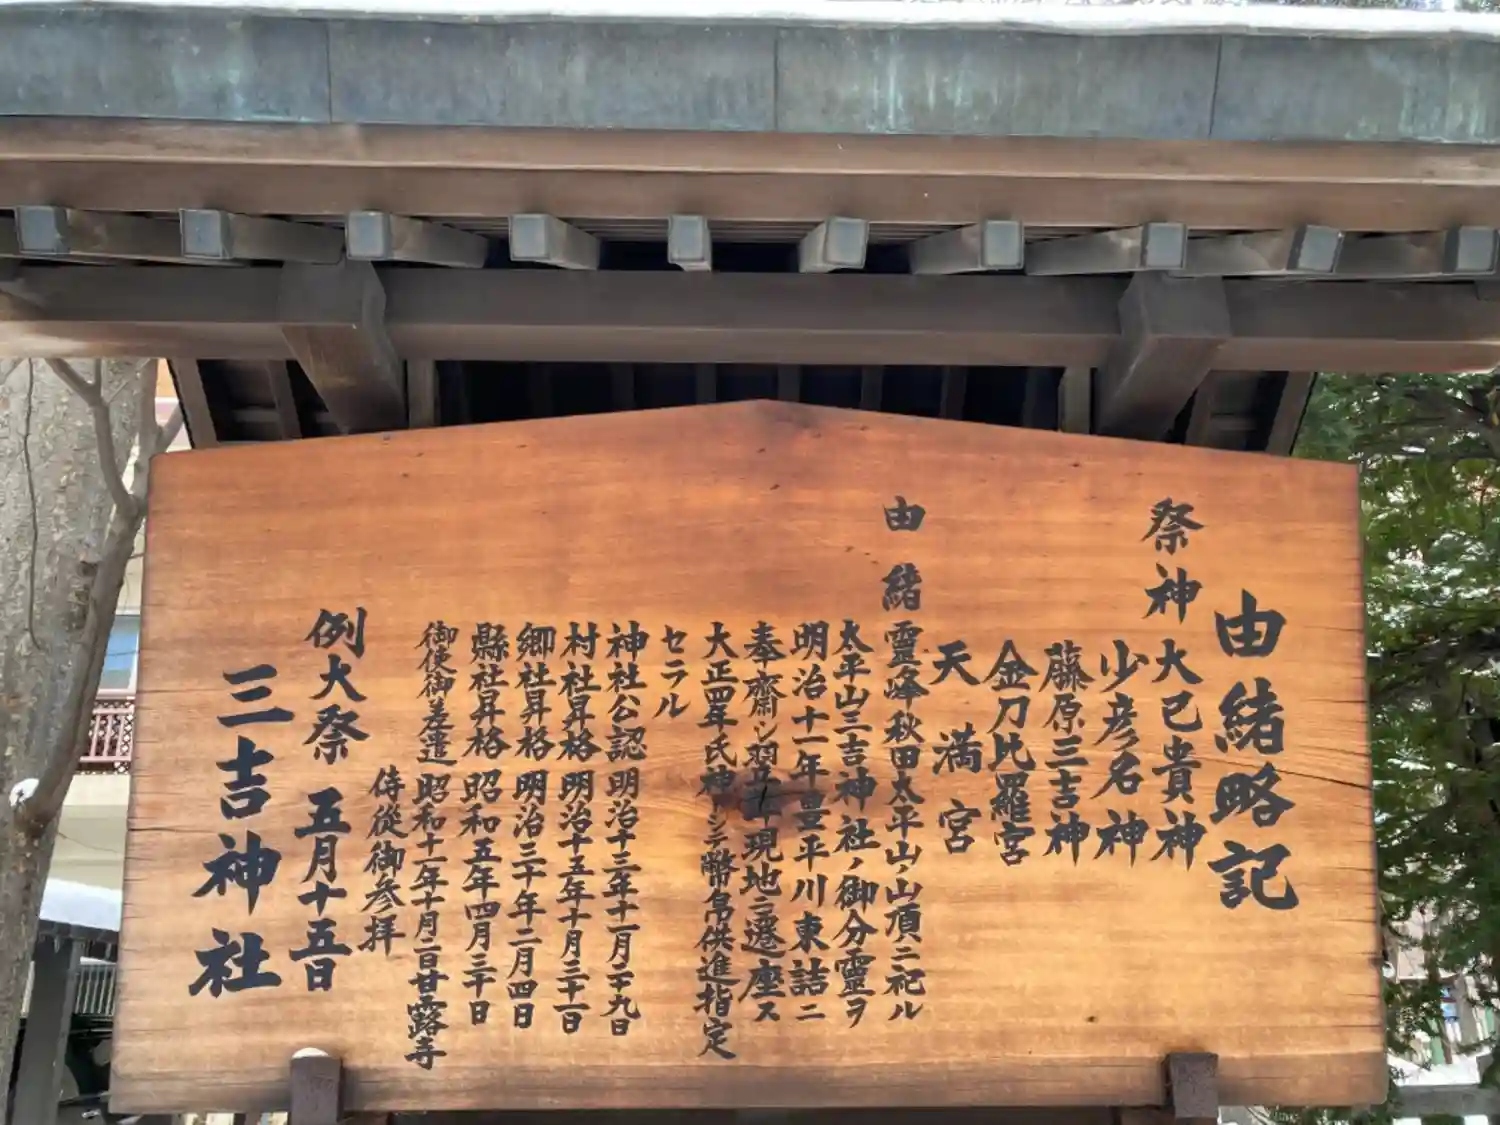 由緒略記
祭神 大己貴神
少彦名神
藤原三吉神
金刀比羅宮
天満宮
由緒 霊峰秋田太平山ノ山頂ニ祀ル
太平山三吉神社ノ御分霊ヲ
明治十一年豊平川東詰ニ
奉齋シ翌年現地ニ遷座ス
大正四年氏神トシテ幣帛供進指定
セラル
神社公認 明治十三年十一月二十九日
村社昇格 明治十五年十月三十一日
郷社昇格 明治三十年二月四日
縣社昇格 昭和五年四月三十日
御使御差遣 昭和十一年十月二日甘露寺
侍從御参拝
例大祭 五月十五日
三吉神社